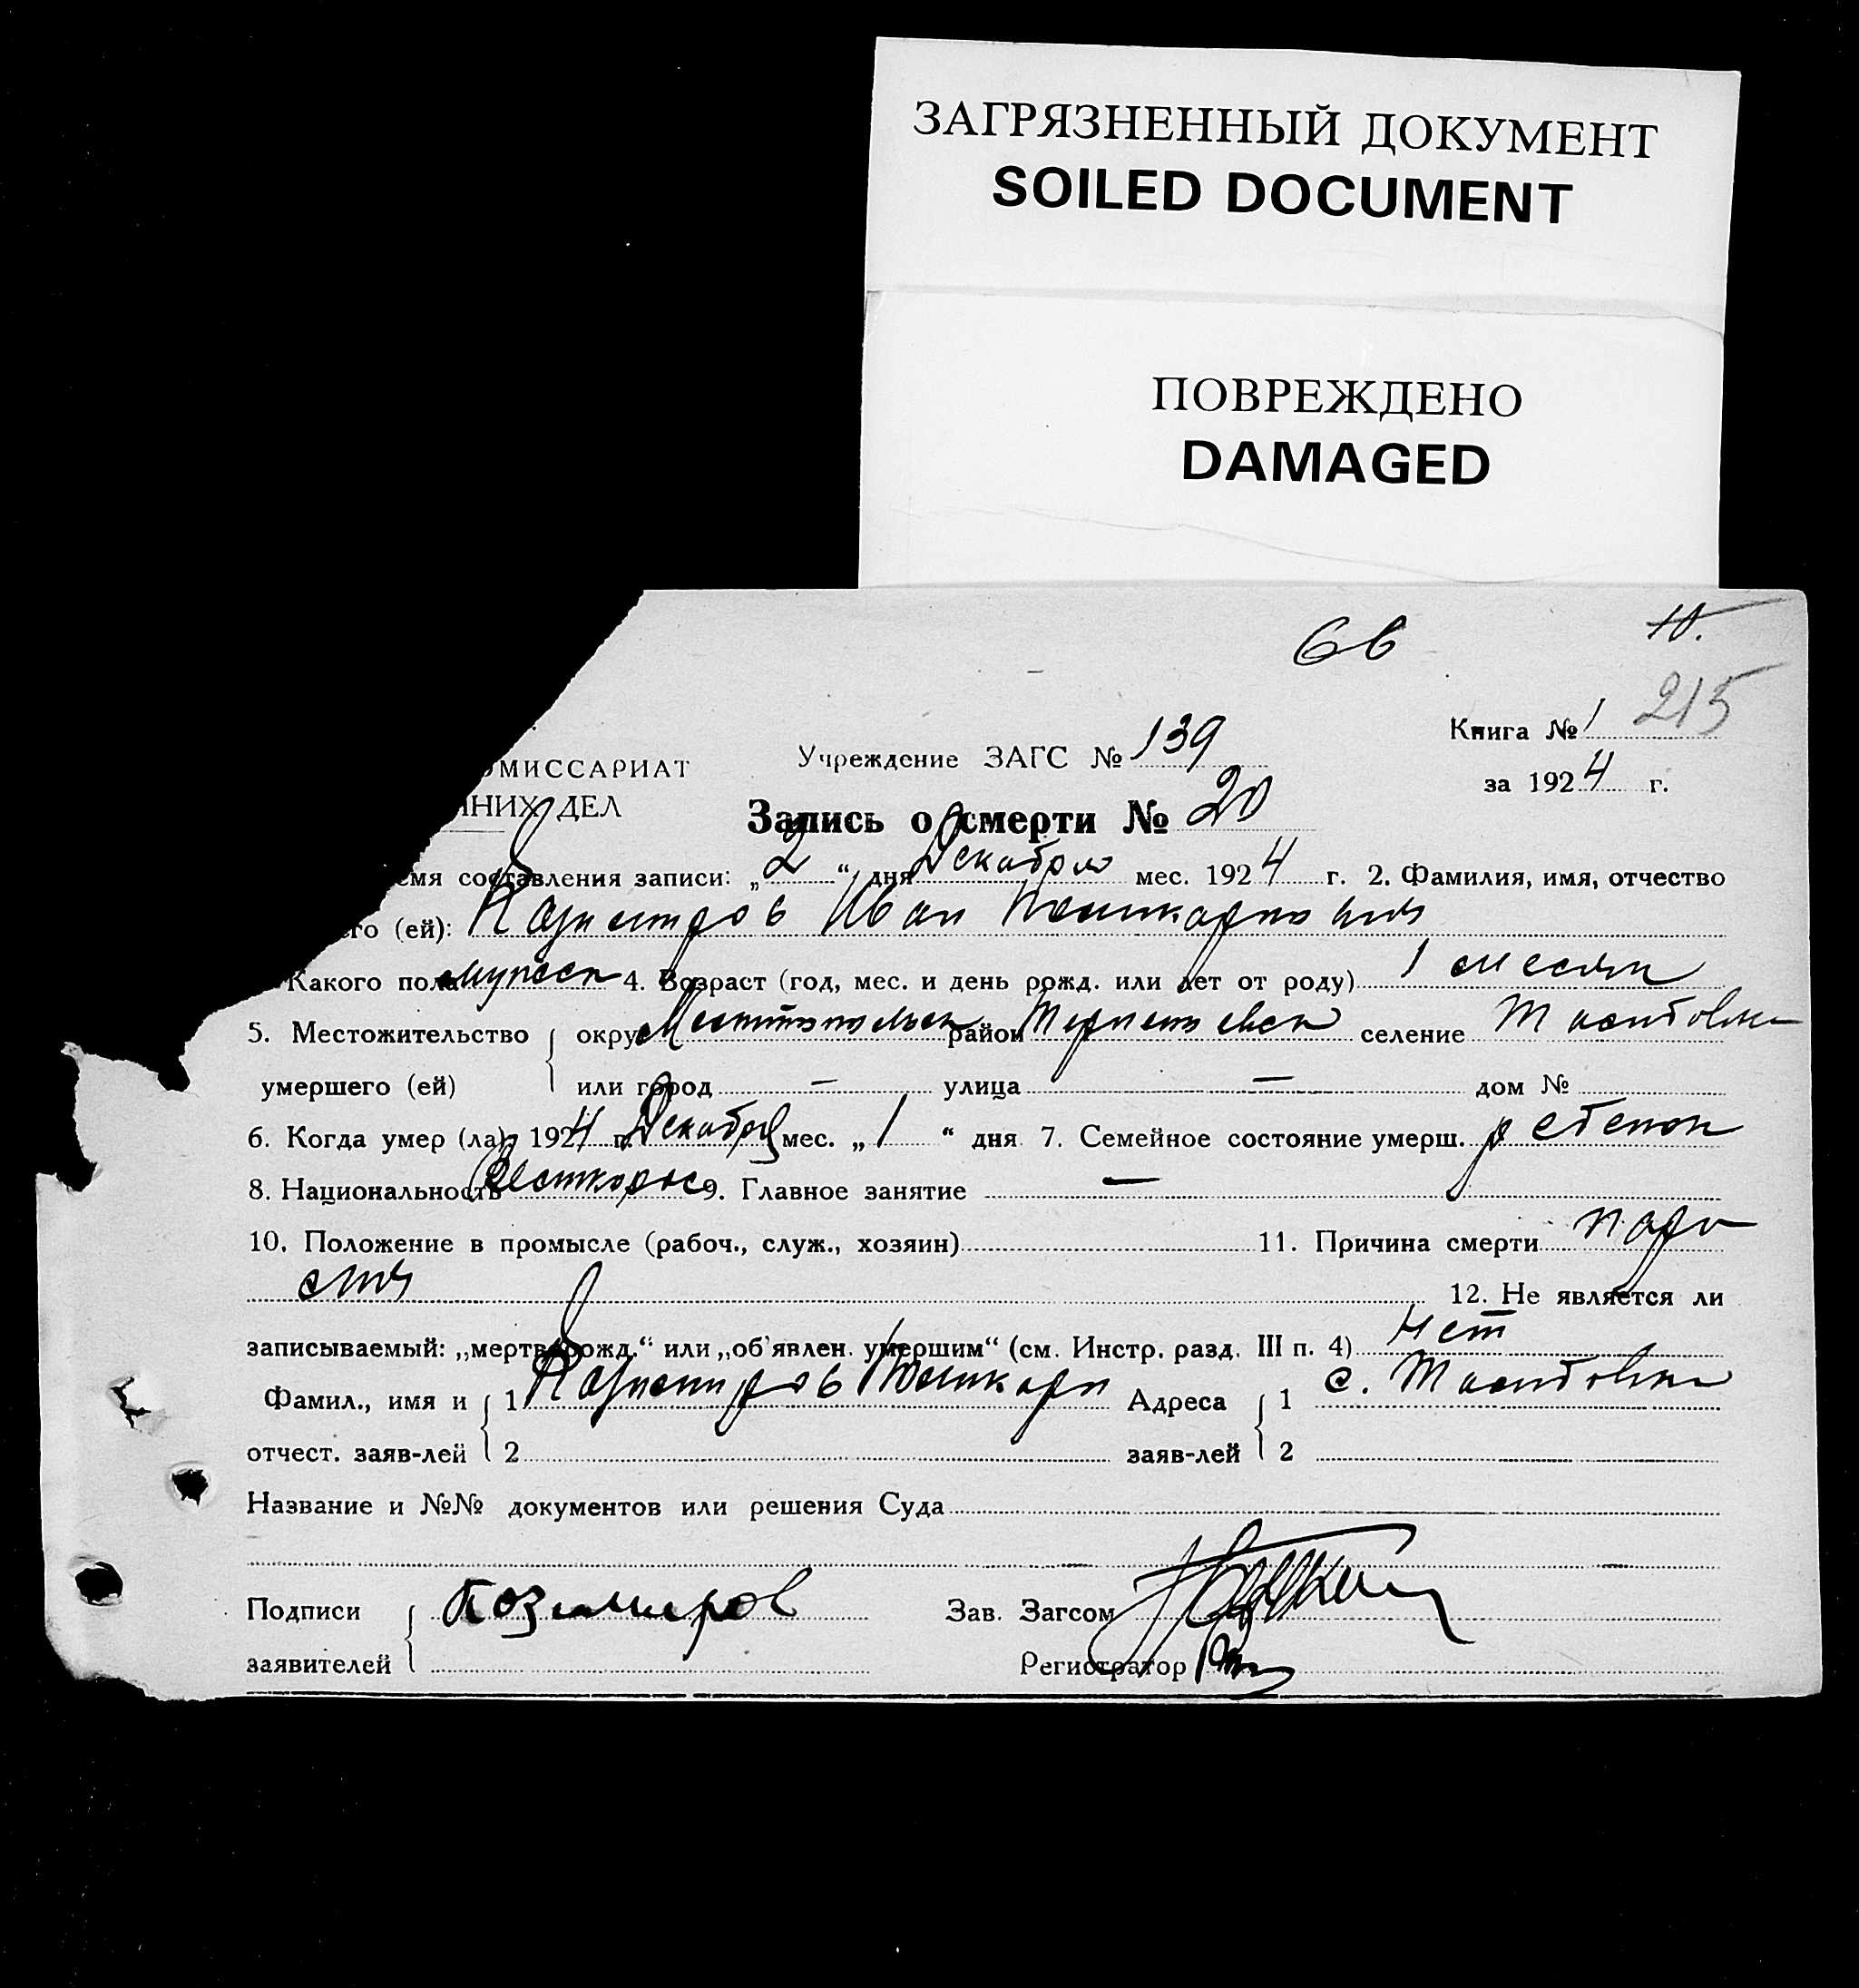 ЗАГРЯЗНЕННЫЙ ДОКУМЕНТ
SOILED DOCUMENT
ПОВРЕЖДЕНО
DAMAGED
66
10.
215
Книга № 1
Учреждение ЗАГС № 139
за 1924 г.
ОМИССАРИАТ
ННИХ ДЕЛ
Запись о смерти № 20
емя составления записи: „2“ дня Декабря мес. 1924 г. 2. Фамилия, имя, отчество
его (ей): Иван
Какого пола 4. Возраст (год, мес. и день рожд. или лет от роду) 1 месяц
5. Местожительство округ район селение
умершего (ей) или город — улица — дом №
6. Когда умер (ла) 1924 г. Декабря мес. „1“ дня 7. Семейное состояние умерш. ребенок
8. Национальность Великорос 9. Главное занятие —
10. Положение в промысле (рабоч., служ., хозяин) 11. Причина смерти
12. Не является ли
записываемый: „мертворожд.“ или „об'явлен. умершим“ (см. Инстр. разд. III п. 4) Нет
Фамил., имя и 1 Адреса 1 с.
отчест. заяв-лей 2 заяв-лей 2
Название и №№ документов или решения Суда
Подписи Зав. Загсом
заявителей Регистратор